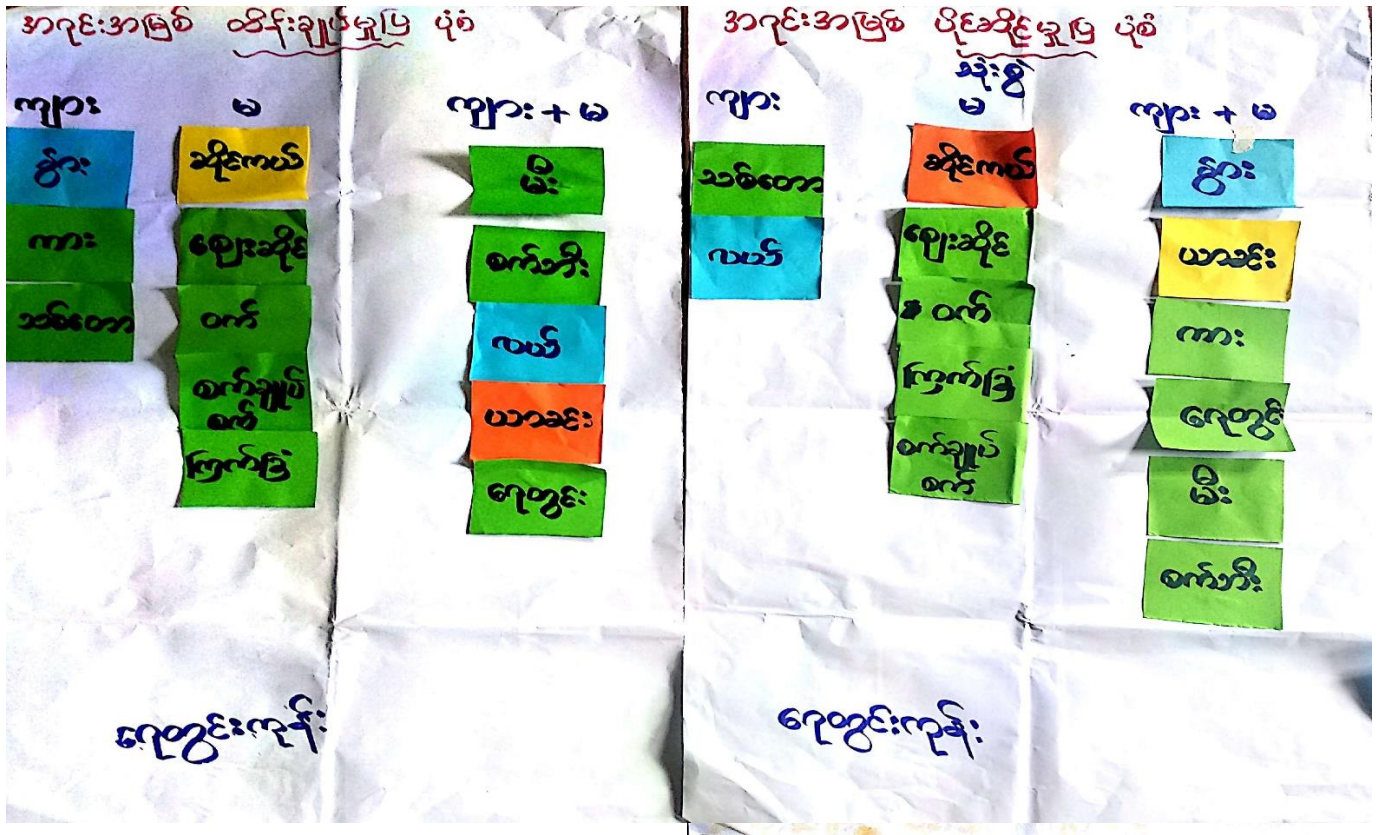 အရင်းအမြစ် ထိန်းချုပ်မှုပြ ပုံစံ
ကျား
မ
ကျား + မ
နွား
ကား
သစ်တော
ဆိုင်ကယ်
ဈေးဆိုင်
ဝက်
စက်ချုပ်
စက်
ကြက်ခြံ
မီး
စက်ဘီး
လယ်
ယာခင်း
ရေတွင်း
ရေတွင်းကုန်း
အရင်းအမြစ် ပိုင်ဆိုင်မှုပြ ပုံစံ
ကျား
သုံးစွဲ
မ
ကျား + မ
သစ်တော
လယ်
ဆိုင်ကယ်
ဈေးဆိုင်
ဝက်
ကြက်ခြံ
စက်ချုပ်
စက်
နွား
ယာခင်း
ကား
ရေတွင်း
မီး
စက်ဘီး
ရေတွင်းကုန်း